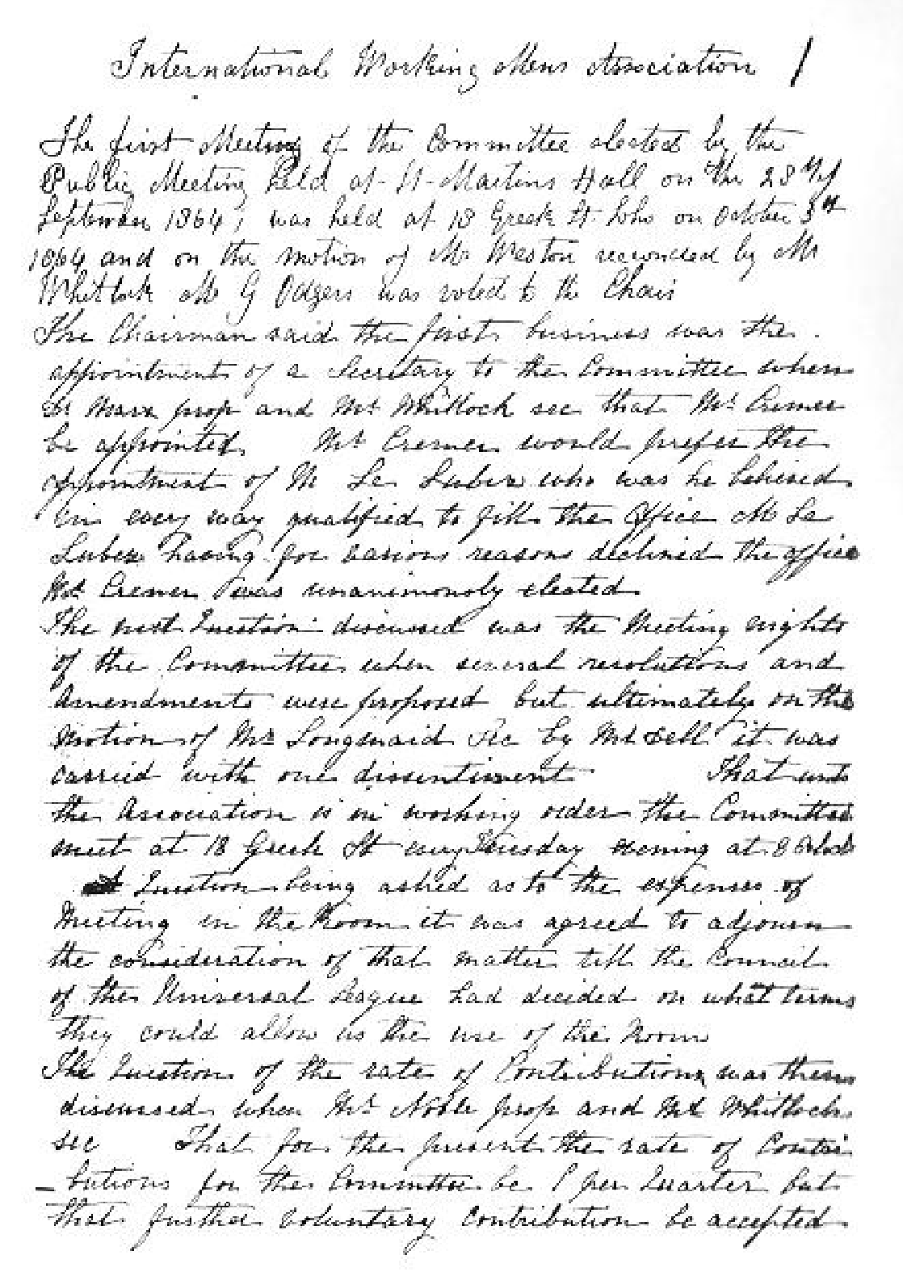 International Working Mens Association 1
The first Meeting of the Committee elected by the
Public Meeting held at St Martins Hall on the 28th of
September 1864, was held at 18 Greek St Soho on October 5th
1864 and on the motion of Mr Weston seconded by Mr
Whitlock Mr G Odgers was voted to the Chair
The Chairman said the first business was the
appointment of a Secretary to the Committee when
Dr Marx prop and Mr Whitlock sec that Mr Cremer
be appointed Mr Cremer would prefer the
appointment of M Le Lubez who was he believed
in every way qualified to fill the Office M Le
Lubez having for various reasons declined the office
Mr Cremer was unanimously elected
The next Question discussed was the Meeting nights
of the Committee when several resolutions and
Amendments were proposed but ultimately on the
Motion of Mr Longmaid Sec by Mr Sell it was
carried with one dissentiment That until
the Association is in working order the Committee
meet at 18 Greek St every Tuesday evening at 8 Oclock
A Question being asked as to the expenses of
Meeting in the Room it was agreed to adjourn
the consideration of that matter till the Council
of the Universal League had decided on what terms
they could allow us the use of the Room
The Question of the rate of Contributions was then
discussed when Mr Noble prop and Mr Whitlock
sec That for the present the rate of Contri
-butions for the Committee be 1 per Quarter but
that further voluntary contribution be accepted